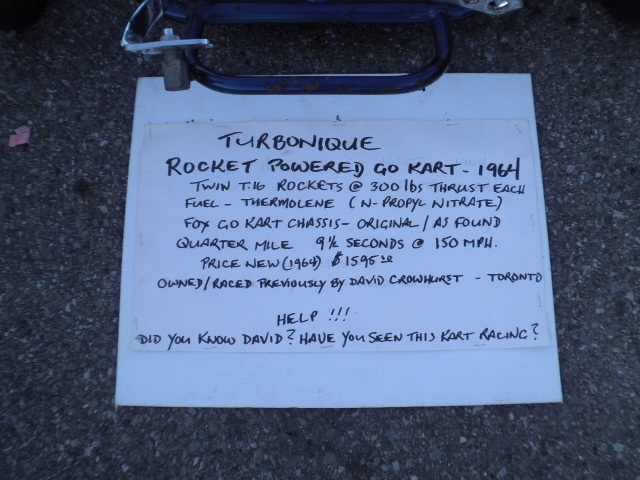 TURBONIQUE
ROCKET POWERED GO KART - 1964
TWIN T.16 ROCKETS @ 300 lbs THRUST EACH
FUEL - THERMOLENE (N-PROPYL NITRATE)
FOX GO KART CHASSIS - ORIGINAL / AS FOUND
QUARTER MILE 9 1/2 SECONDS @ 150 MPH.
PRICE NEW (1964) $1595.00
OWNED/RACED PREVIOUSLY BY DAVID CROWHURST - TORONTO
HELP !!!
DID YOU KNOW DAVID? HAVE YOU SEEN THIS KART RACING?